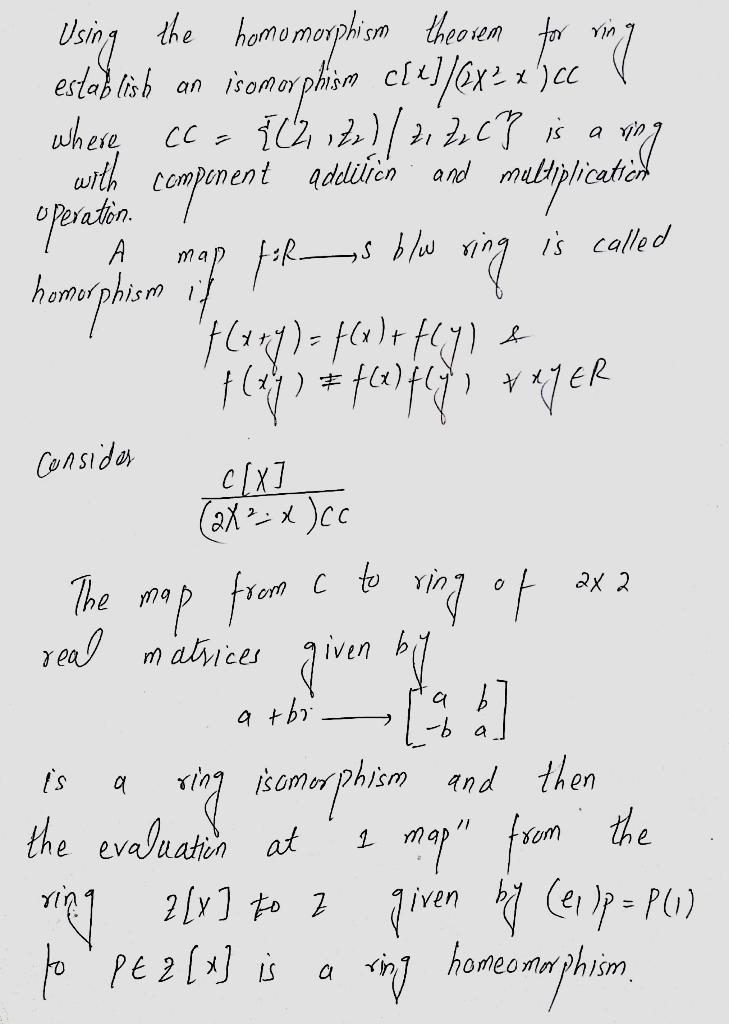 Using the homomorphism theorem for ring
establish an isomorphism c[x]/(2x²-x)cc
where cc = {(Z1,Z2)/ Z1 Z2 C} is a ring
with component addition and multiplication
operation.
A map f:R→s b/w ring is called
homorphism if
f(x+y) = f(x) + f(y) &
f(xy) = f(x) f(y) ∀ xy ∈R
Consider
C[X]
(2X²-x)CC
The map from C to ring of 2x2
real matrices given by
a + bi → [a b
-b a]
is a ring isomorphism and then
the evaluation at 1 map" from the
ring Z[x] to Z given by (e1)p = P(1)
to P∈Z[x] is a ring homeomorphism.